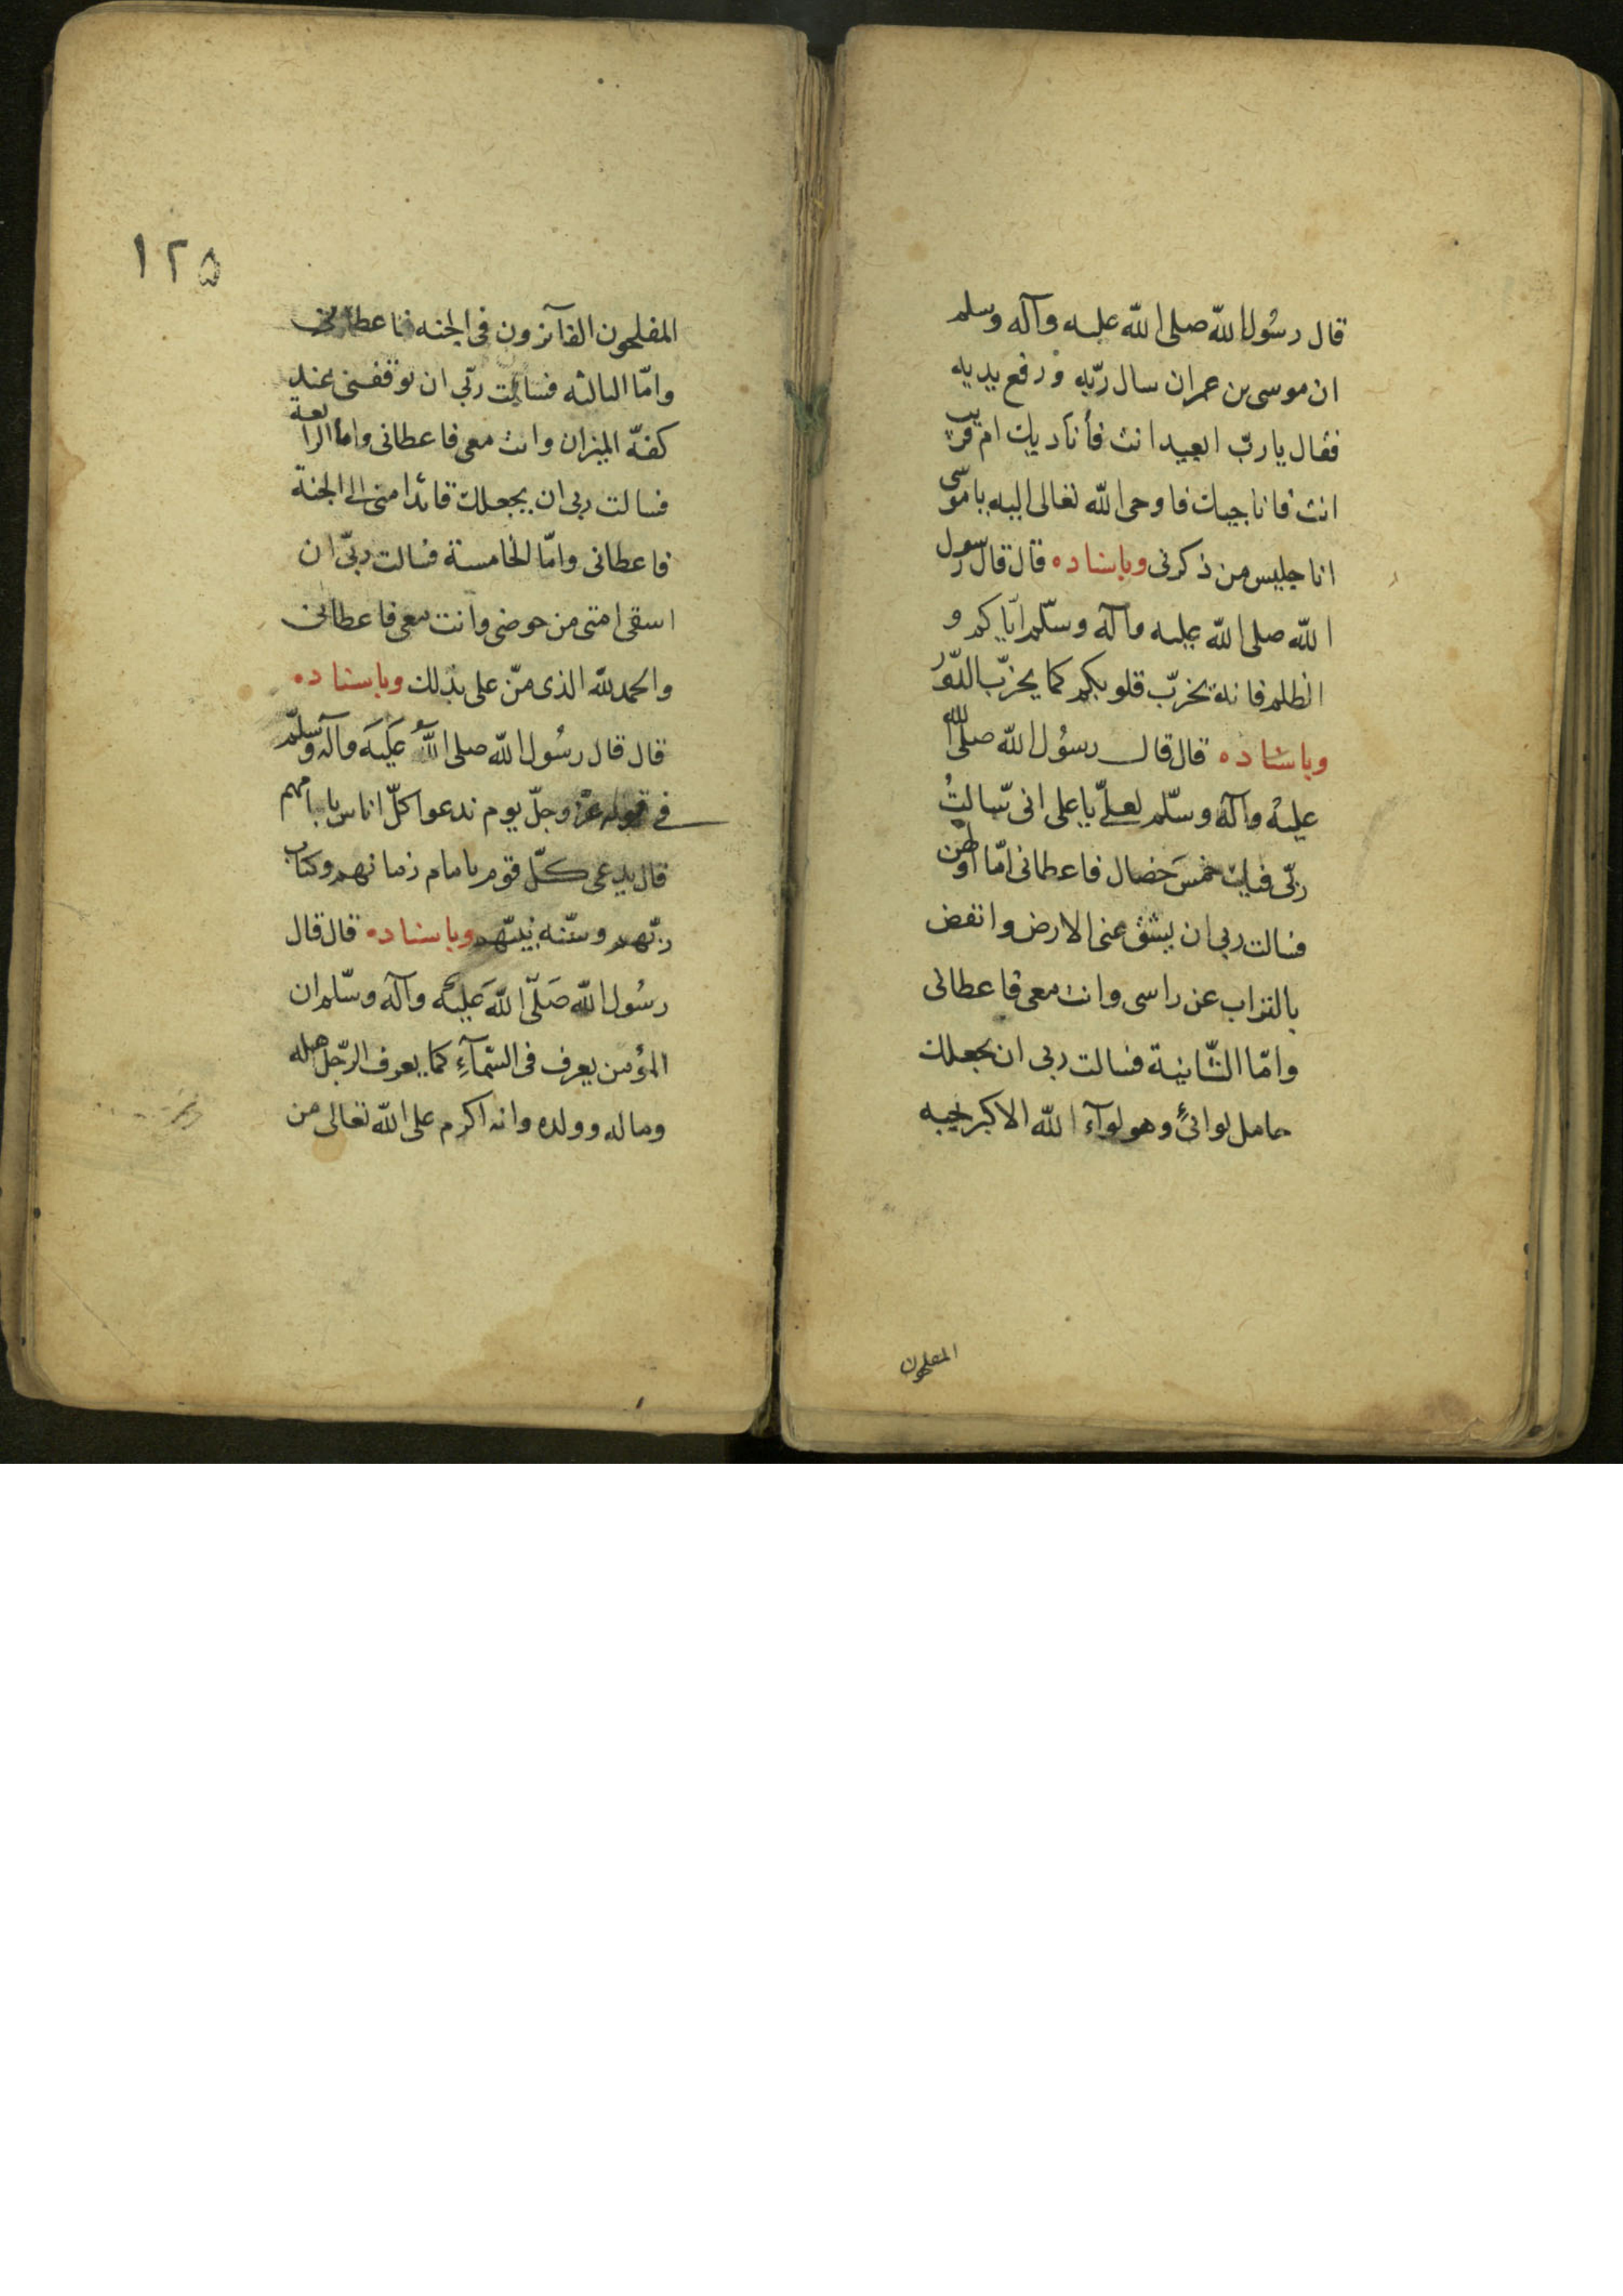 قال رسُول الله صلى الله عليه وآله وسلم
ان موسى بن عمران سال ربّه و رفع يديه
فقال يا ربّ ابعيد انت فأناديك ام قريب
انت فاناجيك فاوحى الله تعالى اليه يا موسى
انا جليس من ذكرنى وباسناده قال قال رسول
الله صلى الله عليه وآله وسلّم ايّاكم و
الظلم فانه يخرّب قلوبكم كما يخرّب الدّور
وباسناده قال قال رسُول الله صلى الله
عليه وآله وسلّم لعلىّ يا على انى سالتُ
ربّى فيك خمسَ خصال فاعطانى امّا اولهن
فسالت ربى ان يشق عنى الارض وانفض
بالتراب عن راسى وانت معى فاعطانى
وامّا الثّانية فسالت ربى ان يجعلك
حامل لوائى وهو لوآء الله الاكبر
المفلحون
١٢٥
المفلحون الفآئزون فى الجنه فاعطانى
وامّا الثالثه فسالت ربّى ان توقفنى عند
كفّه الميزان وانت معى فاعطانى واما الرابعة
فسالت ربى ان يجعلك قائد امتى الى الجنة
فاعطانى وامّا الخامسة فسالت ربّى ان
اسقى امتى من حوضى وانت معى فاعطانى
والحمد لله الذى منّ على بذلك وباسناده
قال قال رسُول الله صلى اللهُ عَلَيَه وآله وسلّم
فى قوله عزّ وجلّ يوم ندعوا كلّ اناس بامامهم
قال يدعى كلّ قوم بامام زمانهم وكتاب
ربّهم وسنّه نبيّهم وباسناده قال قال
رسُول الله صَلّى اللهَ عَليْه وآله وسّلم ان
المؤمن يعرف فى السّمآءِ كما يعرف الرّجل اهله
وماله وولده وانه اكرم على الله تعالى من